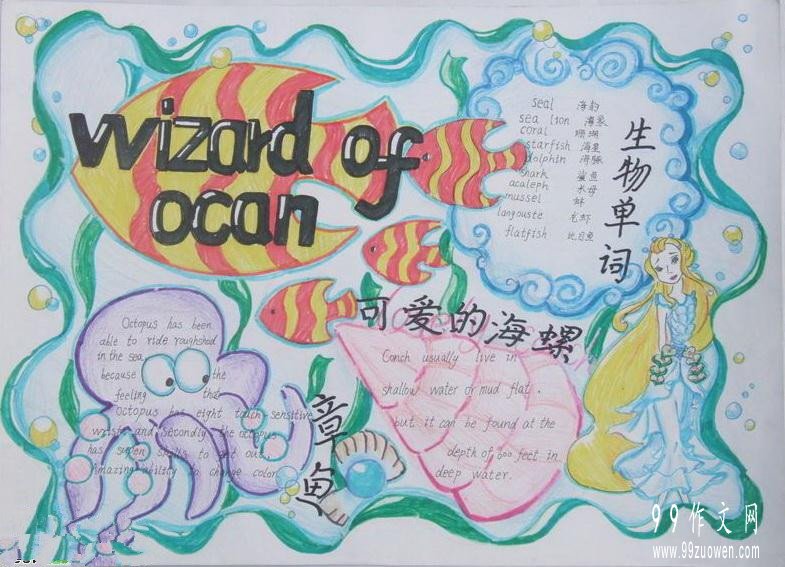 wizard of
ocan
seal 海豹
sea lion 海象
coral 珊瑚
starfish 海星
dolphin 海豚
shark 鲨鱼
acaleph 水母
mussel 蚌
langouste 龙虾
flatfish 比目鱼
生物单词
可爱的海螺
Conch usually live in
shallow water or mud flat.
but it can be found at the
depth of 600 feet in
deep water.
Octopus has been
able to ride roughshod
in the sea
because the
feeling that
Octopus has eight touch sensitive
wrists and Secondly the octopus
has super skills to get out.
Amazing ability to change color
章鱼
99作文网
www.99zuowen.com